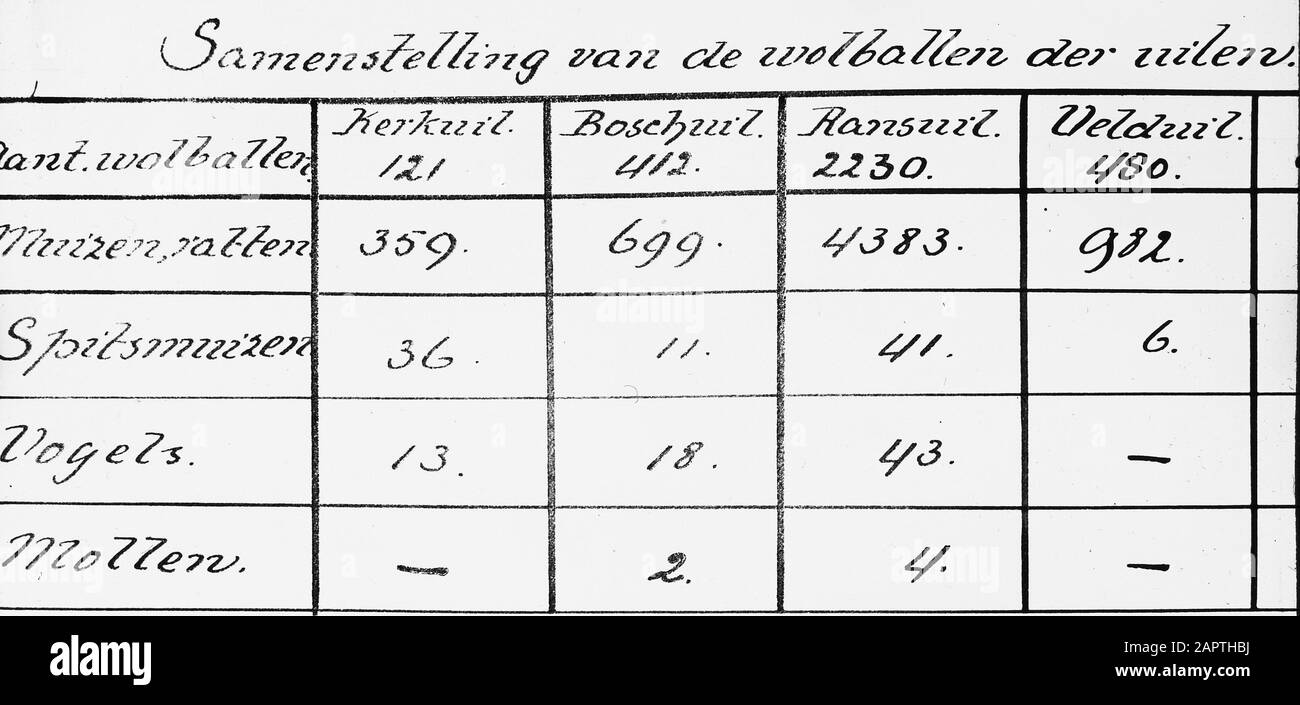 Samenstelling van de wolballen der uilen.
Kerkuil. Boschuil. Ransuil. Velduil.
Aant. wolballen. 121 412. 2230. 480.
Muizen, ratten 359. 699. 4383. 982.
Spitsmuizen 36. 11. 41. 6.
Vogels. 13. 18. 43. —
Mollen. — 2. 4. —
alamy
Image ID: 2APTHBJ
www.alamy.com